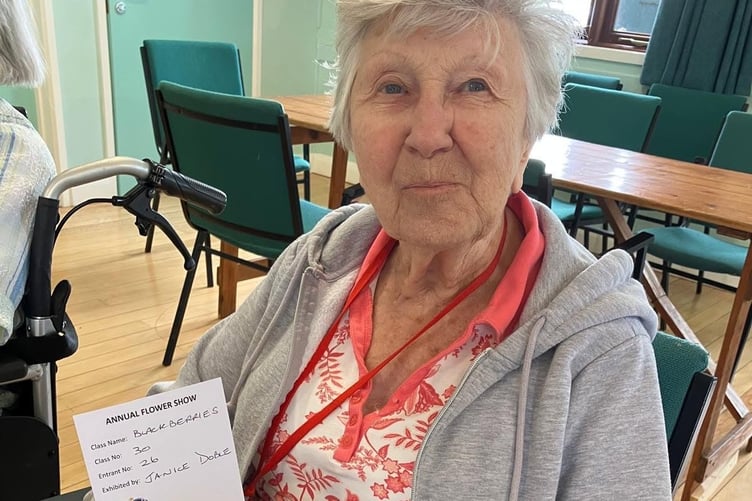 ANNUAL FLOWER SHOW
Class Name: BLACKBERRIES
Class No: 30
Entrant No: 26
Exhibited by: JANICE DOBLE